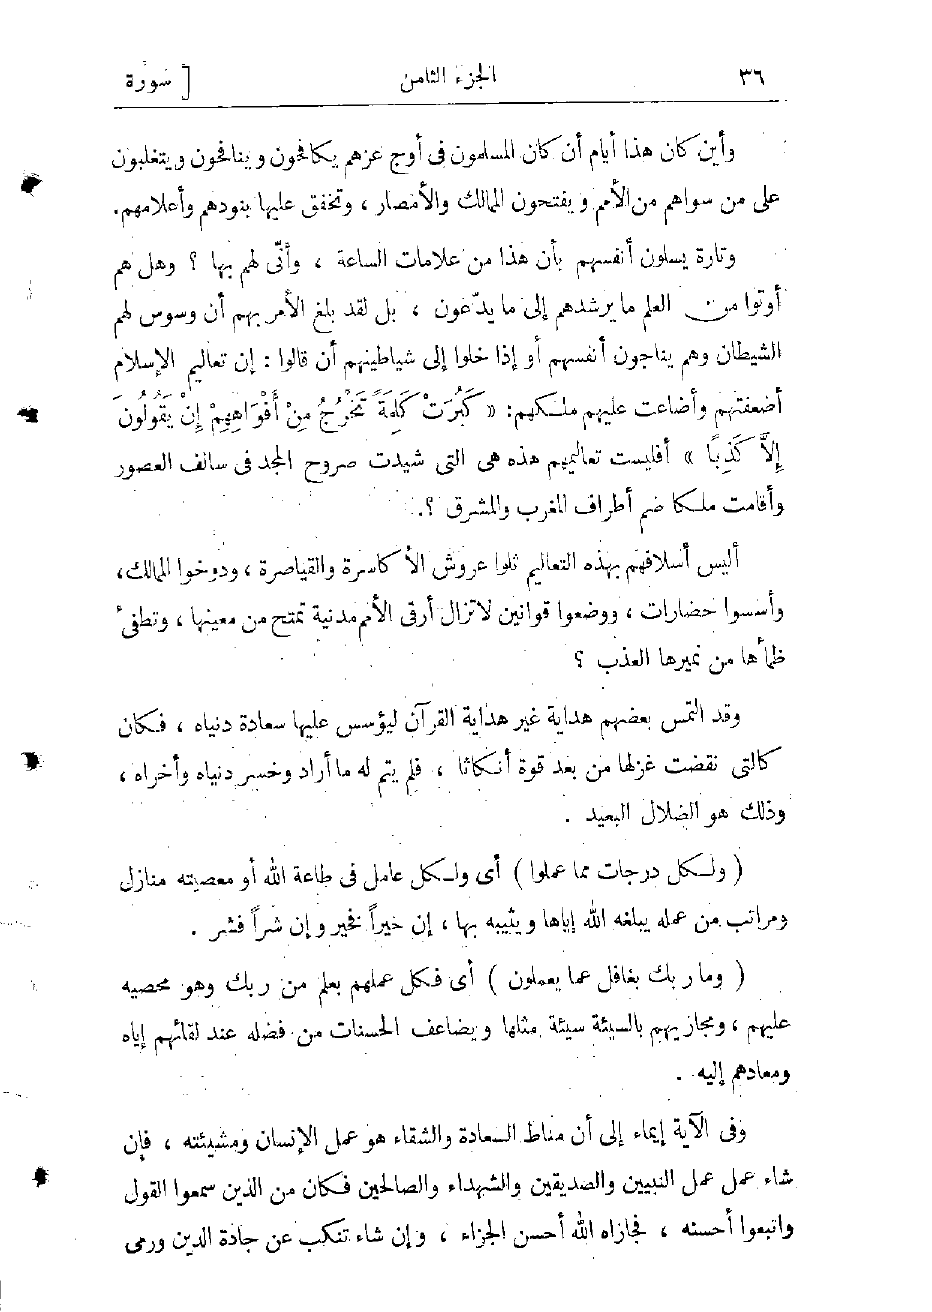 ٣٦ الجزء الثامن [ سورة
وأين كان هذا أيام أن كان المسلمون فى أوج عزهم يكافحون وينافحون ويتغلبون
على من سواهم من الأمم ويفتحون الممالك والأمصار ، وتخفق عليها بنودهم وأعلامهم.
وتارة يسلون أنفسهم بأن هذا من علامات الساعة ، وأنّى لهم بها ؟ وهل هم
أوتوا من العلم ما يرشدهم إلى ما يدّعون ، بل لقد بلغ الأمر بهم أن وسوس لهم
الشيطان وهم يناجون أنفسهم أو إذا خلوا إلى شياطينهم أن قالوا : إن تعاليم الإسلام
أضعفتهم وأضاعت عليهم ملكهم: « كَبُرَتْ كَلِمَةً تَخْرُجُ مِنْ أَفْوَاهِهِمْ إِنْ يَقُولُونَ
إِلاَّ كَذِبًا » أفليست تعاليمهم هذه هى التى شيدت صروح المجد فى سالف العصور
وأقامت ملكا ضم أطراف المغرب والمشرق ؟.
أليس أسلافهم بهذه التعاليم ثلوا عروش الأكاسرة والقياصرة ، ودوخوا الممالك،
وأسسوا حضارات ، ووضعوا قوانين لاتزال أرقى الأمم مدنية تمتح من معينها ، وتطفئ
ظمأها من نميرها العذب ؟
وقد التمس بعضهم هداية غير هداية القرآن ليؤسس عليها سعادة دنياه ، فكان
كالتى نقضت غزلها من بعد قوة أنكاثا ، فلم يتم له ما أراد وخسر دنياه وأخراه ،
وذلك هو الضلال البعيد .
( ولكل درجات مما عملوا ) أى ولكل عامل فى طاعة الله أو معصيته منازل
ومراتب من عمله يبلغه الله إياها ويثيبه بها ، إن خيراً فخير وإن شراً فشر .
( وما ربك بغافل عما يعملون ) أى فكل عملهم بعلم من ربك وهو محصيه
عليهم ، ومجازيهم بالسيئة سيئة مثلها ويضاعف الحسنات من فضله عند لقائهم إياه
ومعادهم إليه .
وفى الآية إيماء إلى أن مناط السعادة والشقاء هو عمل الإنسان ومشيئته ، فإن
شاء عمل عمل النبيين والصديقين والشهداء والصالحين فكان من الذين سمعوا القول
واتبعوا أحسنه ، فجازاه الله أحسن الجزاء ، وإن شاء تنكب عن جادة الدين ورمى